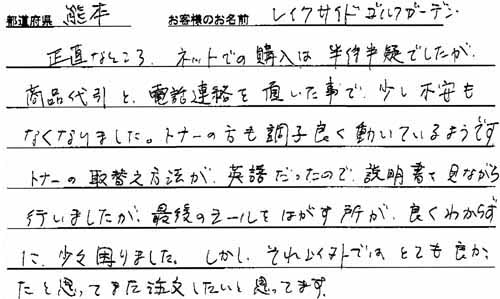 都道府県 熊本 お客様のお名前 レイクサイドゴルフガーデン
正直なところ、ネットでの購入は半信半疑でしたが、
商品代引と、電話連絡を頂いた事で、少し不安も
なくなりました。トナーの方も調子良く動いているようです
トナーの取替え方法が、英語だったので、説明書を見ながら
行いましたが、最後のシールをはがす所が、良くわからず
に、少々困りました。しかし、それ以外では、とても良かっ
たと思ってまた注文したいと思ってます。